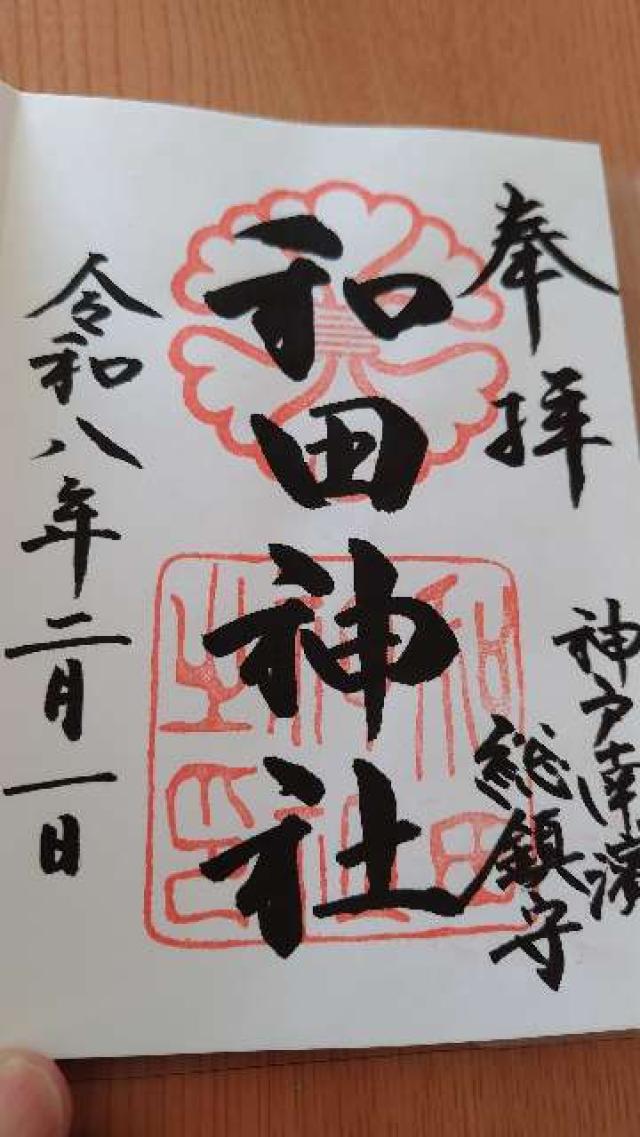 奉拝
神戸南濱
総鎮守
和田神社
和田神社之印
令和八年二月一日